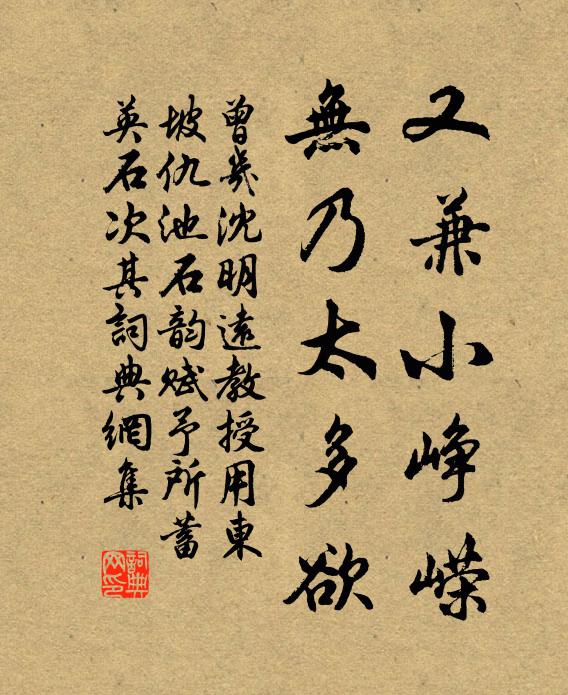 又兼小崢嶸
無乃太多欲
曾幾沈明遠教授用東
坡仇池石韵赋予所蓄
英石次其詞典網集
詞典网印